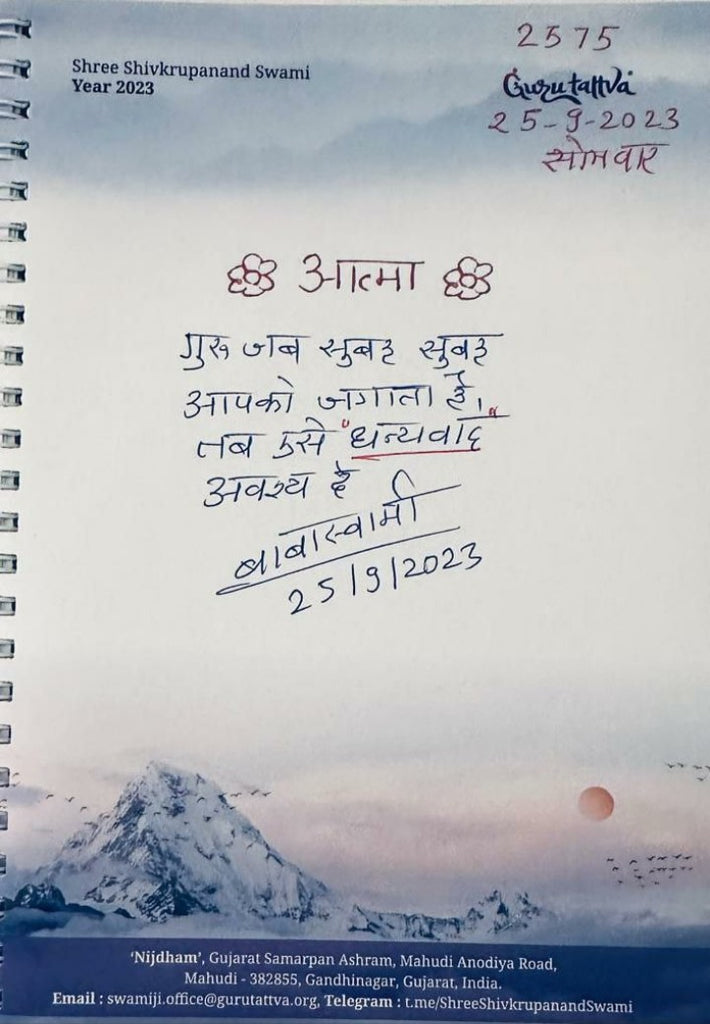 2575
Shree Shivkrupanand Swami
Year 2023
Gurutattva
25-9-2023
सोमवार
आत्मा
गुरु जब सुबह सुबह
आपको जगाता है,
तब उसे "धन्यवाद"
अवश्य दे
बाबास्वामी
25/9/2023
'Nijdham', Gujarat Samarpan Ashram, Mahudi Anodiya Road,
Mahudi - 382855, Gandhinagar, Gujarat, India.
Email : swamiji.office@gurutattva.org, Telegram : t.me/ShreeShivkrupanandSwami